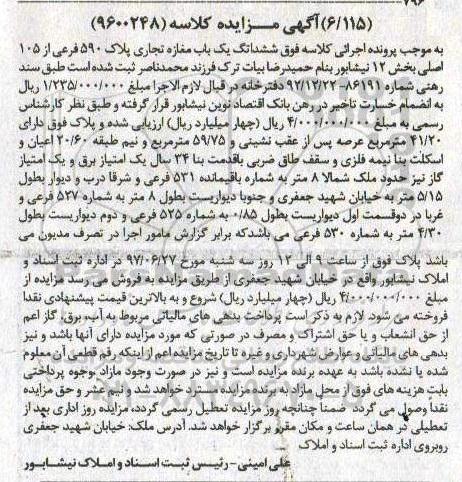 (۶/۱۱۵)آگهی مـــزایده کلاسه (۹۶۰۰۲۴۸)
به موجب پرونده اجرائی کلاسه فوق ششدانگ یک باب مغازه تجاری پلاک ۵۹۰ فرعی از ۱۰۵
اصلی بخش ۱۲ نیشابور بنام حمیدرضا بیات ترک فرزند محمدناصر ثبت شده است طبق سند
رهنی شماره ۸۶۱۹۱- ۹۲/۱۲/۲۲ دفترخانه در قبال لازم الاجرا مبلغ ۱/۲۳۵/۰۰۰/۰۰۰ ریال
به انضمام خسارت تاخیر در رهن بانک اقتصاد نوین نیشابور قرار گرفته و طبق نظر کارشناس
رسمی به مبلغ ۴/۰۰۰/۰۰۰/۰۰۰ ریال (چهار میلیارد ریال) ارزیابی شده و پلاک فوق دارای
۴۱/۲۰ مترمربع عرصه پس از عقب نشینی و ۵۹/۷۵ مترمربع و نیم طبقه ۲۰/۶۰ اعیان و
اسکلت بنا نیمه فلزی و سقف طاق ضربی باقدمت بنا ۳۴ سال یک امتیاز برق و یک امتیاز
گاز نیز حدود ملک شمالا ۸ متر به شماره باقیمانده ۵۳۱ فرعی و شرقا درب و دیوار بطول
۵/۱۵ متر به خیابان شهید جعفری و جنوبا دیواریست بطول ۸ متر به شماره ۵۲۷ فرعی و
غربا در دوقسمت اول دیواریست بطول ۰/۸۵ به شماره ۵۲۵ فرعی و دوم دیواریست بطول
۴/۳۰ متر به شماره ۵۳۰ فرعی می باشدکه برابر گزارش مامور اجرا در تصرف مدیون می
باشد پلاک فوق از ساعت ۹ الی ۱۲ روز سه شنبه مورخ ۹۷/۰۶/۲۷ در اداره ثبت اسناد و
املاک نیشابور واقع در خیابان شهید جعفری از طریق مزایده به فروش می رسد مزایده از
مبلغ ۴/۰۰۰/۰۰۰/۰۰۰ ریال (چهار میلیارد ریال) شروع و به بالاترین قیمت پیشنهادی نقدا
فروخته می شود. لازم به ذکر است پرداخت بدهی های مالیاتی مربوط به آب، برق، گاز اعم
از حق انشعاب و یا حق اشتراک و مصرف در صورتی که مورد مزایده دارای آنها باشد و نیز
بدهی های مالیاتی و عوارض شهرداری و غیره تا تاریخ مزایده اعم از اینکه رقم قطعی آن معلوم
شده یا نشده باشد به عهده برنده مزایده است و نیز در صورت وجود مازاد ،وجوه پرداختی
بابت هزینه های فوق از محل مازاد به برنده مزایده مسترد خواهد شد و نیم عشر و حق مزایده
نقداً وصول می گردد ضمناً چنانچه روز مزایده تعطیل رسمی گردد، مزایده روز اداری بعد از
تعطیلی در همان ساعت و مکان مقرر برگزار خواهد شد. آدرس ملک: خیابان شهید جعفری
روبروی اداره ثبت اسناد و املاک
علی امینی- رئیس ثبت اسناد و املاک نیشابور